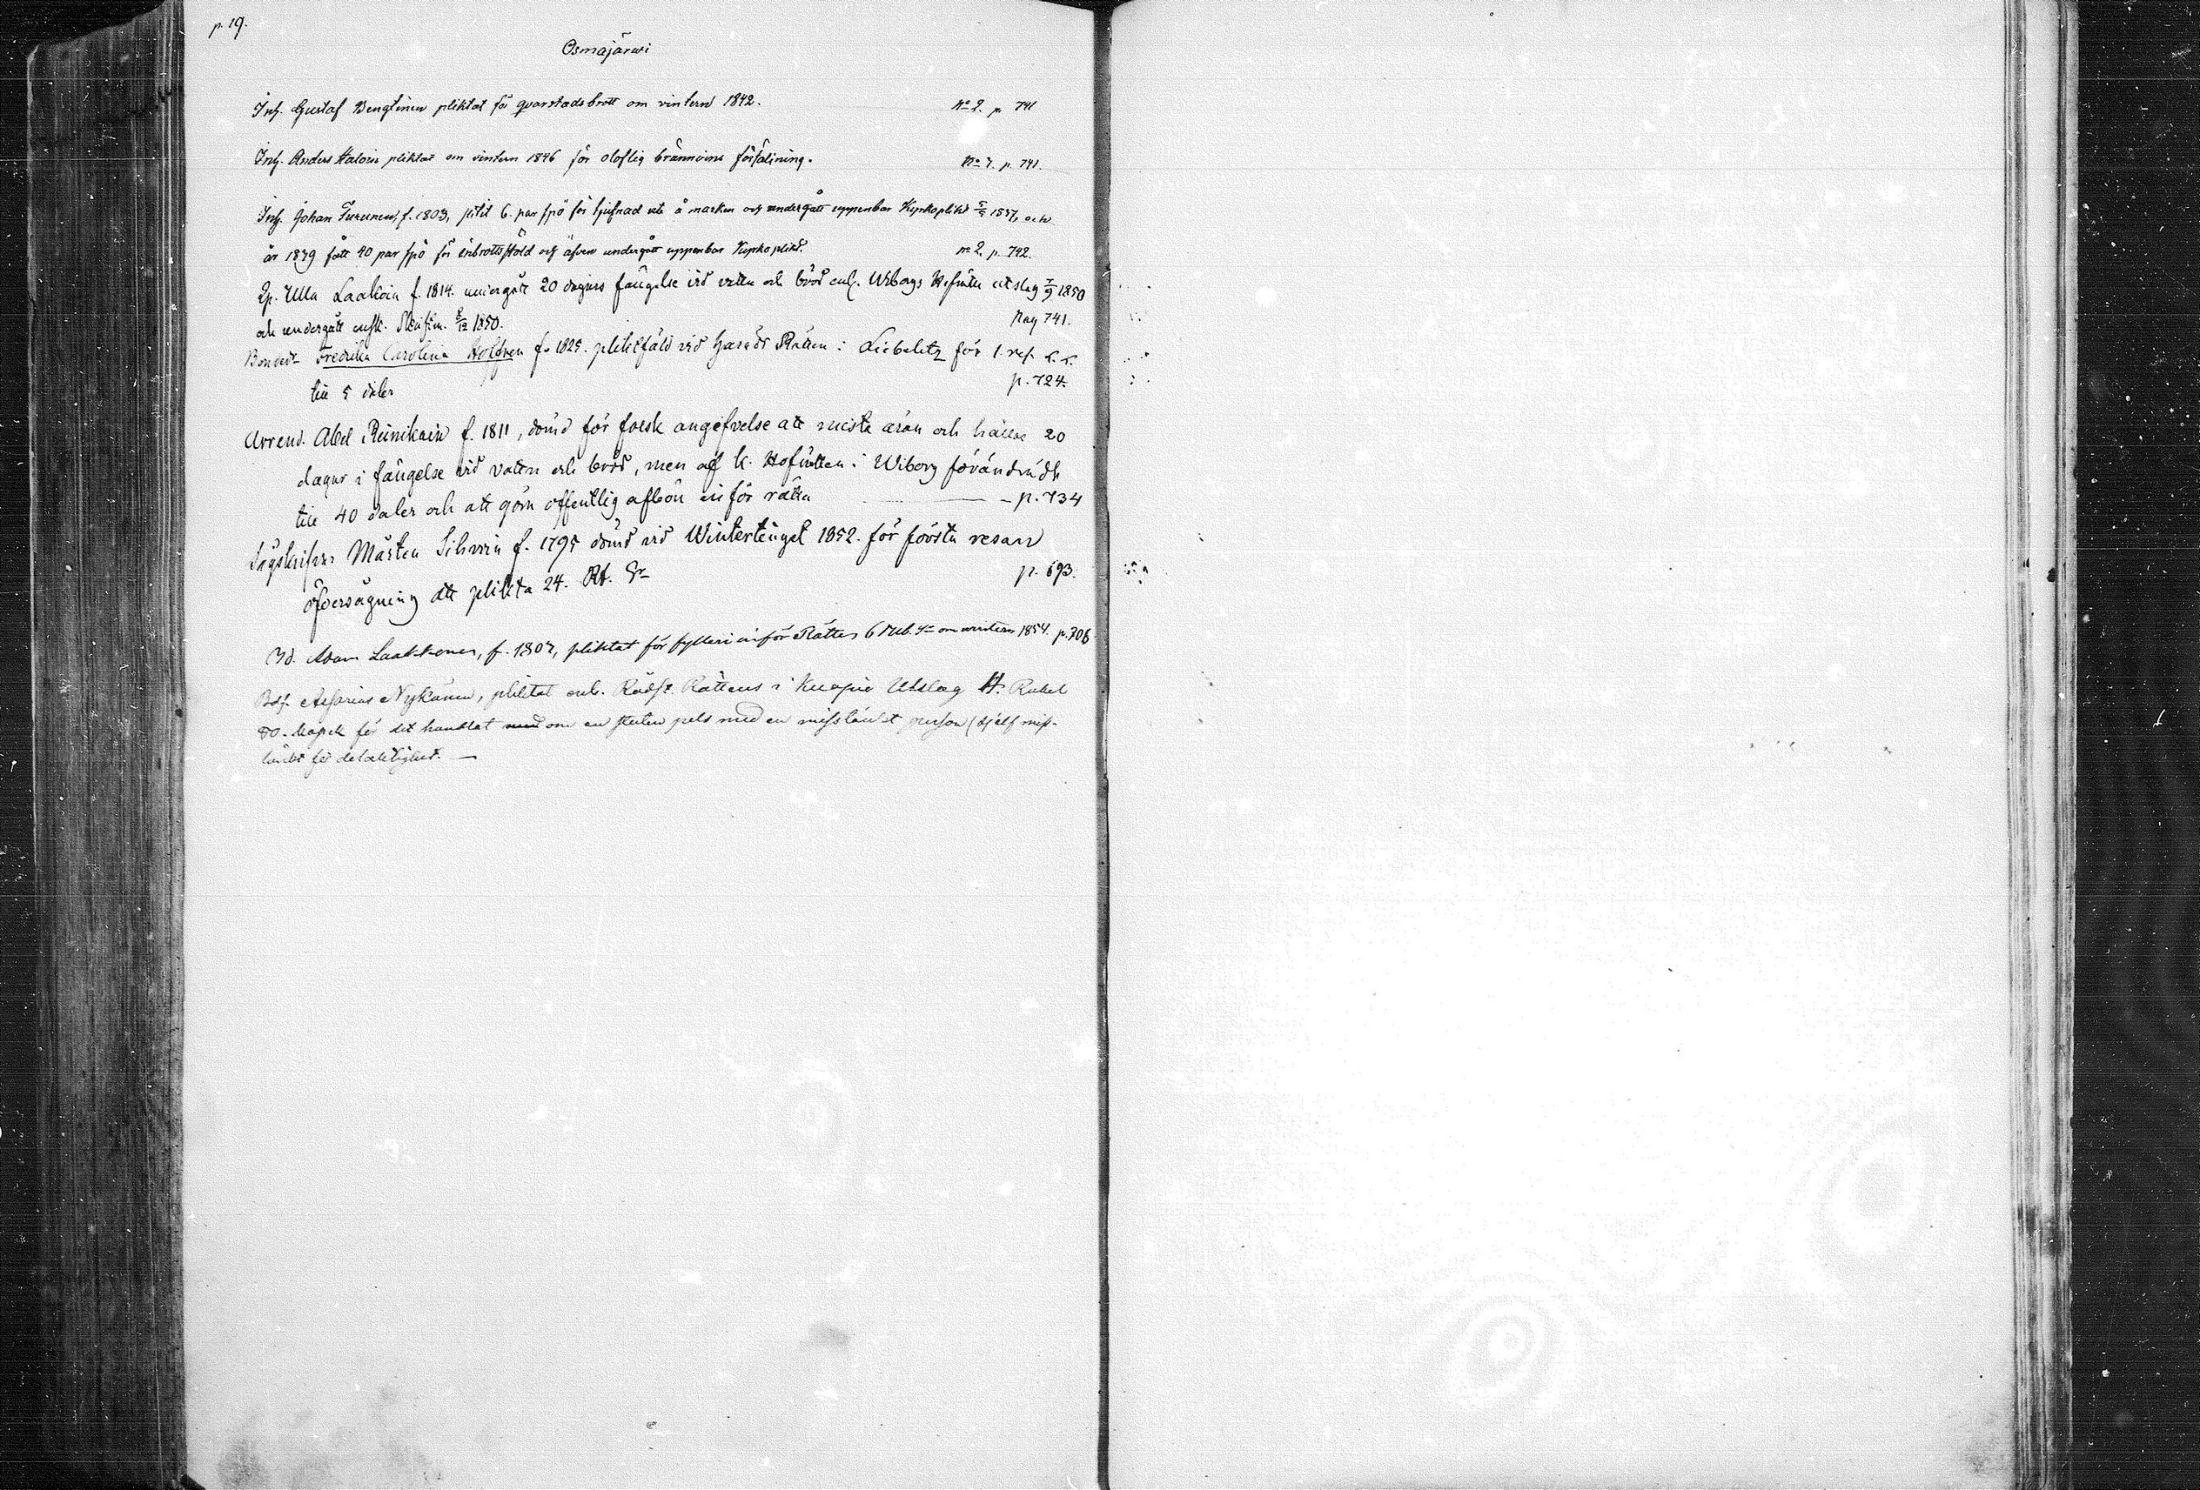 p. 19.
Osmajärwi
Inh. Gustaf Bengtinen pliktat för qvarstadsbrott om vintern 1842. No 2. p. 741
Inh. Anders Haloin pliktat om vintern 1846 för oloflig brännvins försäljning. No 7. p. 741.
Inh. Johan Turunen, f. 1803, slitit 6. par spö för tjufnad ute å marken och undergått uppenbar Kyrkoplikt 1837, och
år 1839 fått 40 par spö för inbrottsstöld och äfven undergått uppenbar Kyrkoplikt. no 2. p. 742.
Ulla Laakoin f. 1814. undergått 20 dagars fängelse vid vatten och bröd enl. Wiborgs Hofrätts utslag 7/9 1850
och undergått ensk. 8/12 1850. Pag 741.
Bonded. Fredrika Carolina f. 1825. pliktfäld vid Härads Rätten i Liebelitz för 1. res.
till 5 daler p. 724.
Arrend. Abel Reinikain f. 1811, dömd för falsk angifvelse att mista äran och hållas 20
dagar i fängelse vid vatten och bröd, men af K. Hofrätten i Wiborg förändradt
till 40 daler och att göra offentlig afbön inför rätta — p. 734
Mårten Sihvoin f. 1795 dömd vid Wintertinget 1852. för första resan
att plikta 24. Rb. Sr p. 693.
Adam Laakkonen, f. 1807, pliktat för fylleri inför Rätten 6 Rub. Sr om wintern 1854. p. 706
Asarius Nykänen, pliktat enl. Rådst. Rättens i Kuopio Utslag Rubel
80. kopek för det handlat om en stulen pels med en misstänkt person (sjelf miss-
tänkt för delaktighet. —